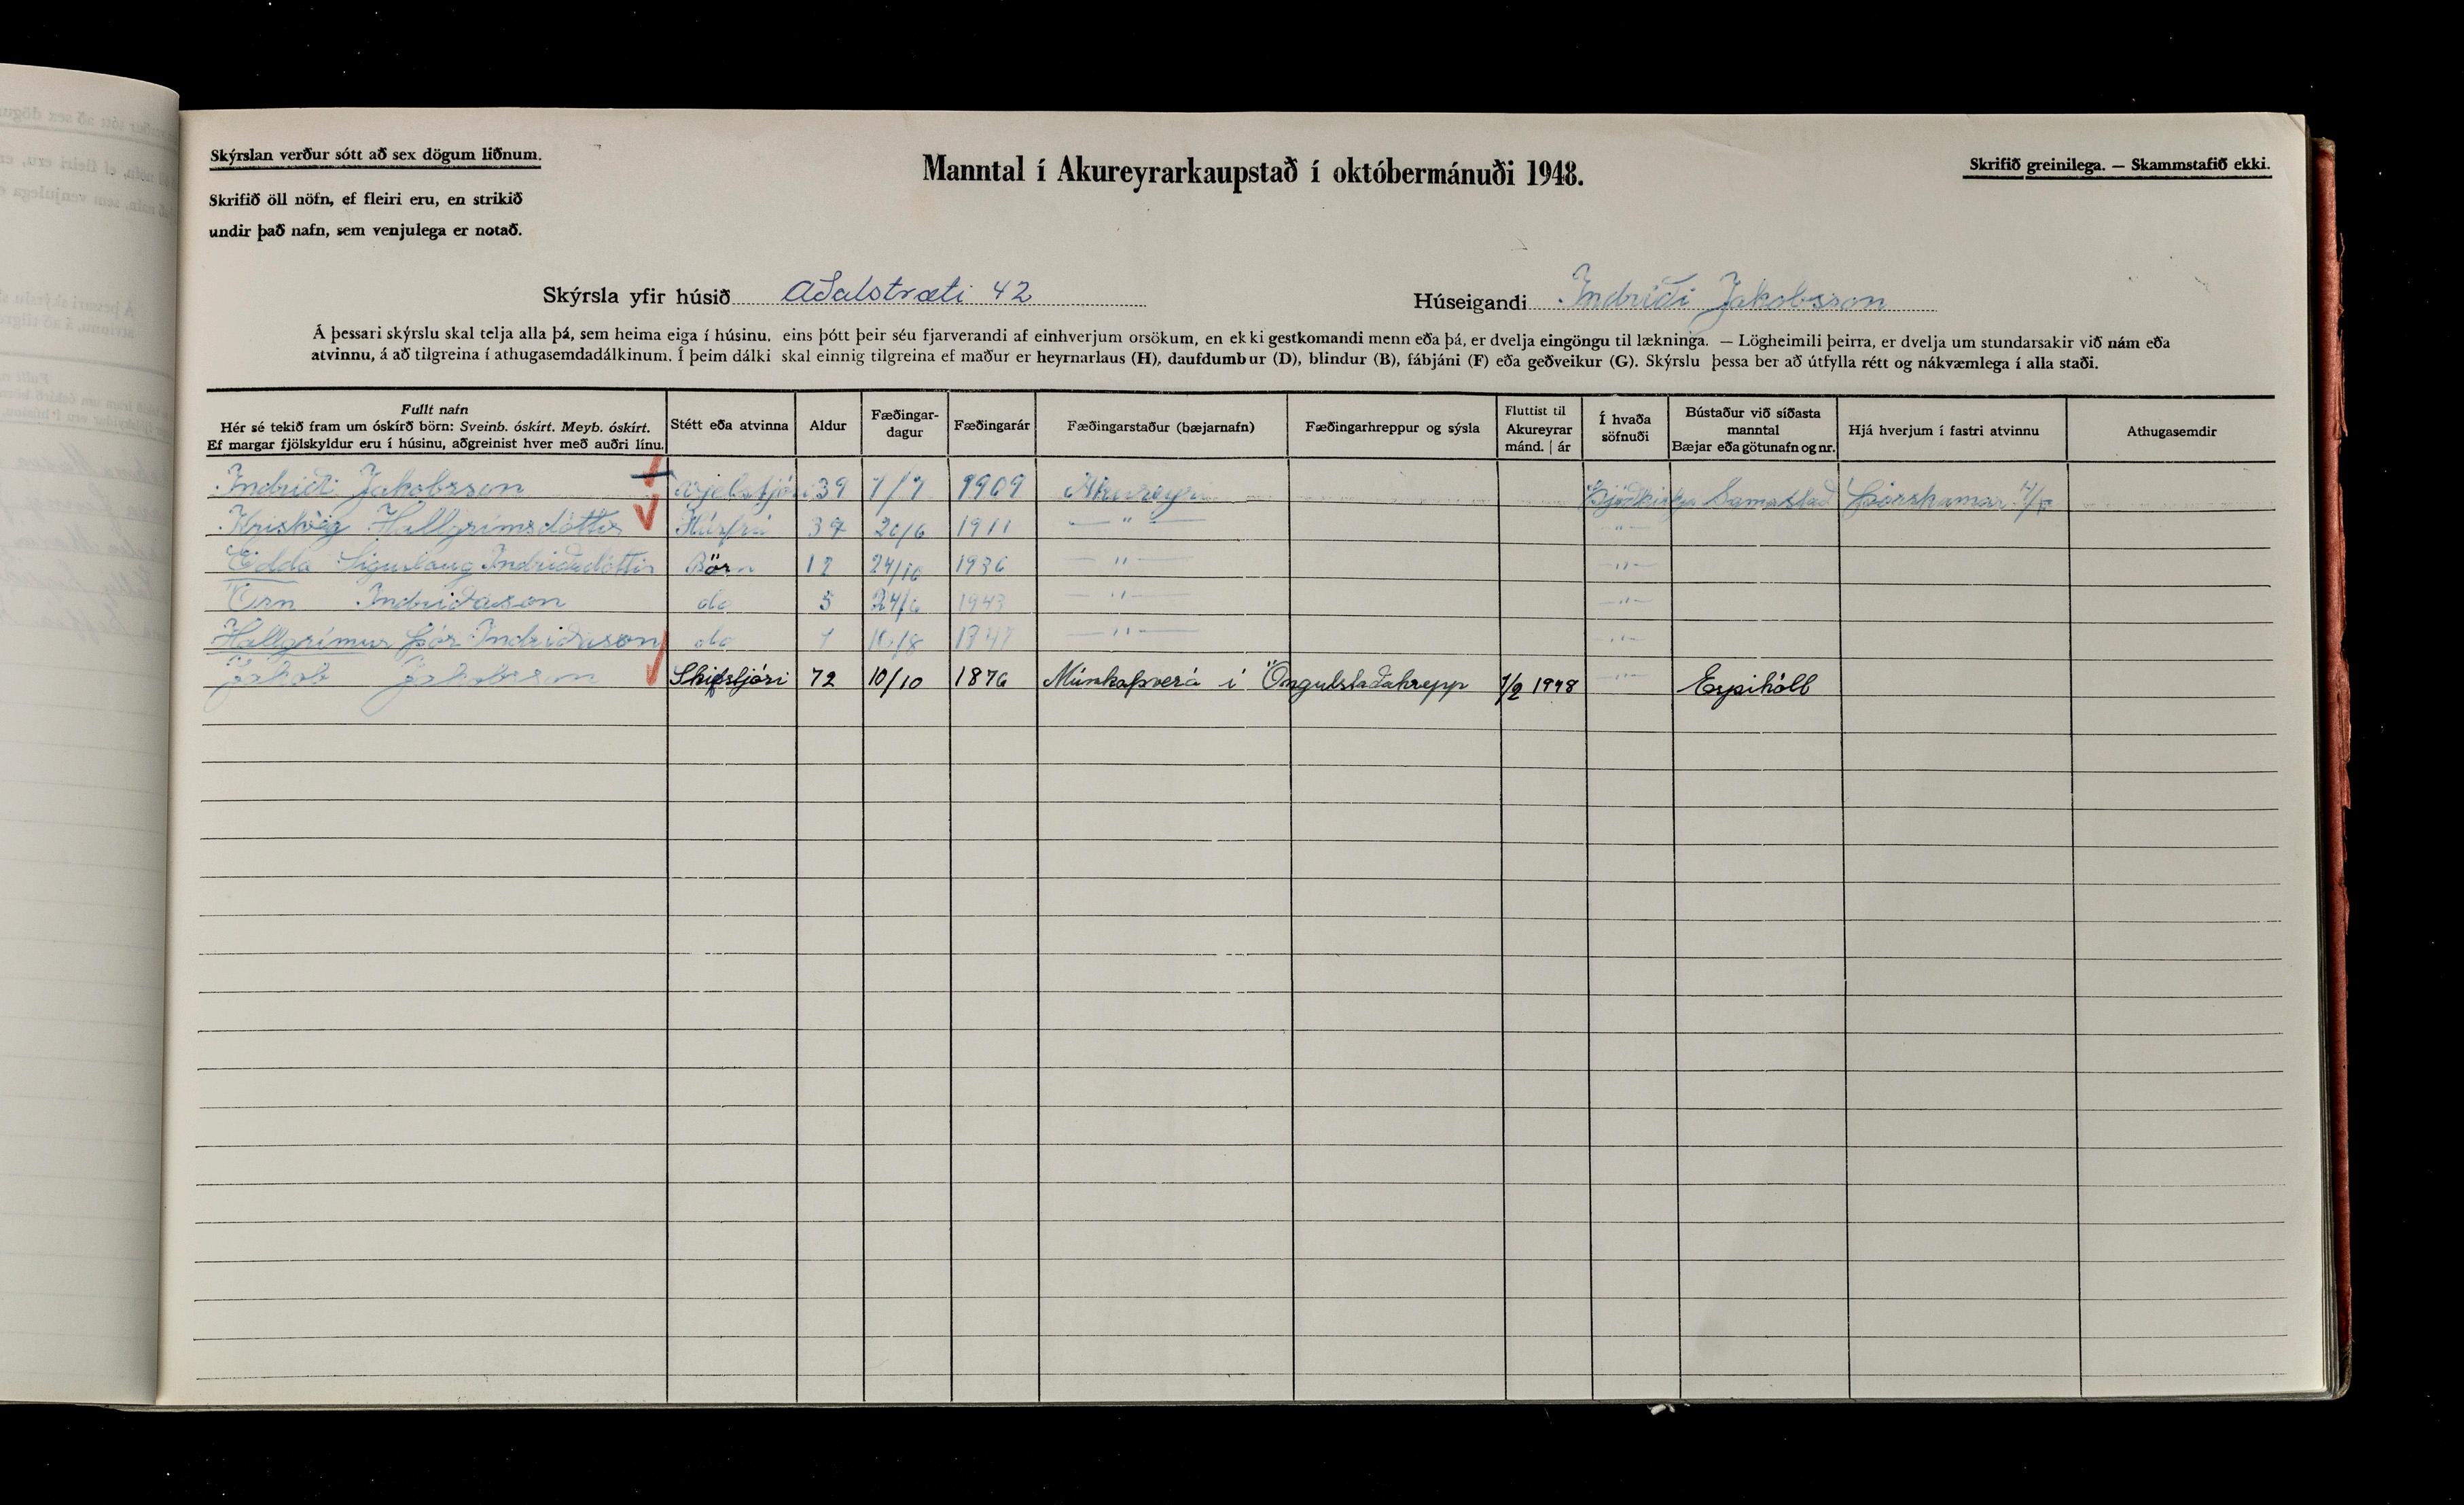 Skýrslan verður sótt að sex dögum liðnum.
Skrifið öll nöfn, ef fleiri eru, en strikið
undir það nafn, sem venjulega er notað.
Manntal í Akureyrarkaupstað í októbermánuði 1948.
Skrifið greinilega. — Skammstafið ekki.
Skýrsla yfir húsið Aðalstræti 42
Húseigandi Indriði Jakobsson
Á þessari skýrslu skal telja alla þá, sem heima eiga í húsinu, eins þótt þeir séu fjarverandi af einhverjum orsökum, en ekki gestkomandi menn eða þá, er dvelja eingöngu til lækninga. — Lögheimili þeirra, er dvelja um stundarsakir við nám eða
atvinnu, á að tilgreina í athugasemdadálkinum. Í þeim dálki skal einnig tilgreina ef maður er heyrnarlaus (H), daufdumbur (D), blindur (B), fábjáni (F) eða geðveikur (G). Skýrslu þessa ber að útfylla rétt og nákvæmlega í alla staði.
Fullt nafn
Hér sé tekið fram um óskírð börn: Sveinb. óskírt. Meyb. óskírt.
Ef margar fjölskyldur eru í húsinu, aðgreinist hver með auðri línu.
Stétt eða atvinna
Aldur
Fæðingar-
dagur
Fæðingarár
Fæðingarstaður (bæjarnafn)
Fæðingarhreppur og sýsla
Fluttist til
Akureyrar
mánd. | ár
Í hvaða
söfnuði
Bústaður við síðasta
manntal
Bæjar eða götunafn og nr.
Hjá hverjum í fastri atvinnu
Athugasemdir
Indriði Jakobsson 39 7/7 1909 Akureyri Þjóðkirkja Samastað Þórshamar H/F
Hallgrímsdóttir Húsfrú 37 20/6 1911 — " —
Edda Sigurlaug Indriðadóttir Börn 12 24/10 1936 — " — — " —
Örn Indriðason do 5 24/6 1943 — " — — " —
Hallgrímur Þór Indriðason do 1 10/8 1947 — " — — " —
Jakob Jakobsson Skipstjóri 72 10/10 1876 Múnkaþverá í Öngulstaðahrepp 1/2 1948 — " — Espihóll